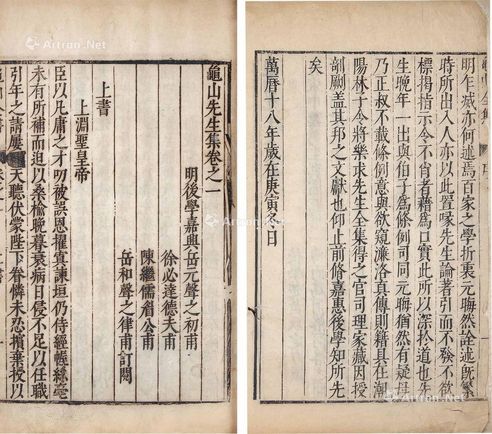 明年城亦何述焉百家之學折衷元晦然詮述既繁
時所出入人亦以此置喙先生論著引而不發不欲
標揭指示令不肖者藉爲口實此所以深於道也先
生晚年一出與伯子爲條例司同元晦猶然有疑毋
乃正叔不載條例意與欲窺濂洛真傳則籍具在潮
陽林子今將樂求先生全集得之官司理家藏因授
剞劂蓋其邦之文獻也仰止前脩嘉惠後學知所先
矣
萬曆十八年歲在庚寅冬日
龜山先生集卷之一
明後學嘉興岳元聲之初甫
徐必達德夫甫
陳繼儒眉公甫
岳和聲之律甫訂閱
上書
上淵聖皇帝
臣以凡庸之才叨被誤恩擢寘諫垣仍侍經幄絲毫
未有所補而迫以桑榆晚暮衰病日侵不足以任職
引年之請屢天聽伏蒙陛下眷憐未忍擯棄授以
Artron.Net
Artron.Net